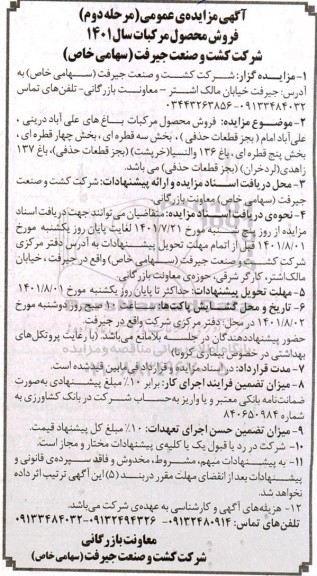 آگهی مزایده‌ی عمومی (مرحله دوم)
فروش محصول مرکبات سال ۱۴۰۱
شرکت کشت و صنعت جیرفت (سهامی خاص)
۱- مزایده گزار: شرکت کشت و صنعت جیرفت (سهامی خاص) به
آدرس: جیرفت خیابان مالک اشتر - معاونت بازرگانی- تلفن‌های تماس
۰۹۱۳۳۴۸۴۰۳۲ - ۰۳۴۴۳۲۶۳۸۵۶
۲- موضوع مزایده: فروش محصول مرکبات باغ های علی آباد درینی ،
علی‌آباد امام ( بجز قطعات حذفی ) ، بخش سه قطره ای ، بخش چهار قطره ای ،
بخش پنج قطره ای، باغ ۱۳۶ والنسیا(خرپشت) (بجز قطعات حذفی)، باغ ۱۳۷
زاهدی(لردخران) (بجز قطعات حذفی) می باشد.
۳- محل دریافت اسناد مزایده و ارائه پیشنهادات: شرکت کشت و صنعت
جیرفت (سهامی خاص) معاونت بازرگانی.
۴- نحوه‌ی دریافت اسناد مزایده: متقاضیان می‌توانند جهت دریافت اسناد
مزایده از روز پنج شنبه مورخ ۱۴۰۱/۷/۲۱ لغایت پایان روز یکشنبه مورخ
۱۴۰۱/۸/۰۱ قبل از اتمام مهلت تحویل پیشنهادات به آدرس دفتر مرکزی
شرکت کشت و صنعت جیرفت (سهامی خاص) واقع در جیرفت ، خیابان
مالک‌اشتر، کارگر شرقی، حوزه‌ی معاونت بازرگانی.
۵- مهلت تحویل پیشنهادات: حداکثر تا پایان روز یکشنبه مورخ ۱۴۰۱/۸/۰۱
۶- تاریخ و محل گشایش پاکت‌ها: ساعت ۱۰ صبح روز دوشنبه مورخ
۱۴۰۱/۸/۰۲ در محل: دفتر مرکزی شرکت واقع در جیرفت.
حضور پیشنهاددهندگان در جلسه بلامانع می‌باشد. (با رعایت پروتکل‌های
بهداشتی در خصوص بیماری کرونا)
۷- مدت قرارداد: در اسناد مزایده و قرارداد فی‌مابین قید شده است.
۸- میزان تضمین فرایند اجرای کار: برابر ۱۰٪ مبلغ پیشنهادی به‌صورت
ضمانت‌نامه بانکی معتبر و یا واریز به‌حساب شرکت در بانک کشاورزی به
شماره ۸۴۰۶۵۰۹۸۴
۹- میزان تضمین حسن اجرای تعهدات: ۱۰٪ مبلغ کل پیشنهاد قیمت.
۱۰- شرکت در رد یا قبول یک یا کلیه‌ی پیشنهادات مختار و مجاز است.
۱۱- به پیشنهادات مبهم، مشروط، مخدوش و فاقد سپرده‌ی قانونی و
پیشنهادات بعد از انقضای مهلت مقرر در بند (۵) این آگهی ترتیب اثر داده
نخواهد شد.
۱۲- هزینه‌های آگهی و کارشناسی به عهده‌ی شرکت می‌باشد.
تلفن‌های تماس: ۰۹۱۳۲۴۸۰۹۱۴ - ۰۹۱۳۲۴۹۴۳۲۶ - ۰۹۱۳۳۴۸۴۰۳۲
معاونت بازرگانی
شرکت کشت و صنعت جیرفت (سهامی خاص)